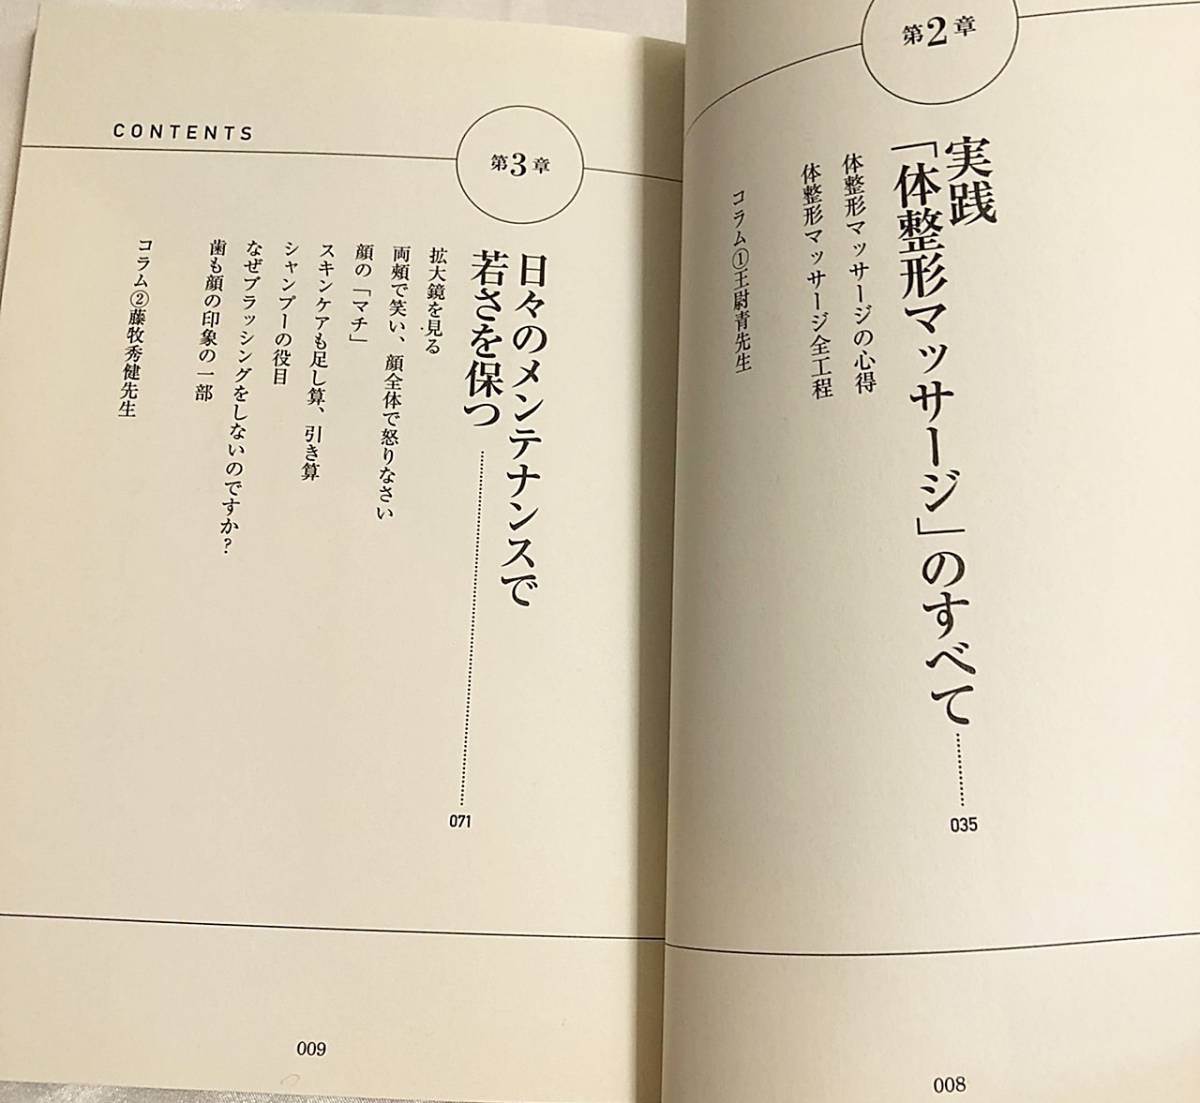 第2章
実践
「体整形マッサージ」のすべて
035
体整形マッサージの心得
体整形マッサージ全工程
コラム①王尉青先生
008
CONTENTS
第3章
日々のメンテナンスで
若さを保つ
071
拡大鏡を見る
両頰で笑い、顔全体で怒りなさい
顔の「マチ」
スキンケアも足し算、引き算
シャンプーの役目
なぜブラッシングをしないのですか?
歯も顔の印象の一部
コラム②藤牧秀健先生
009